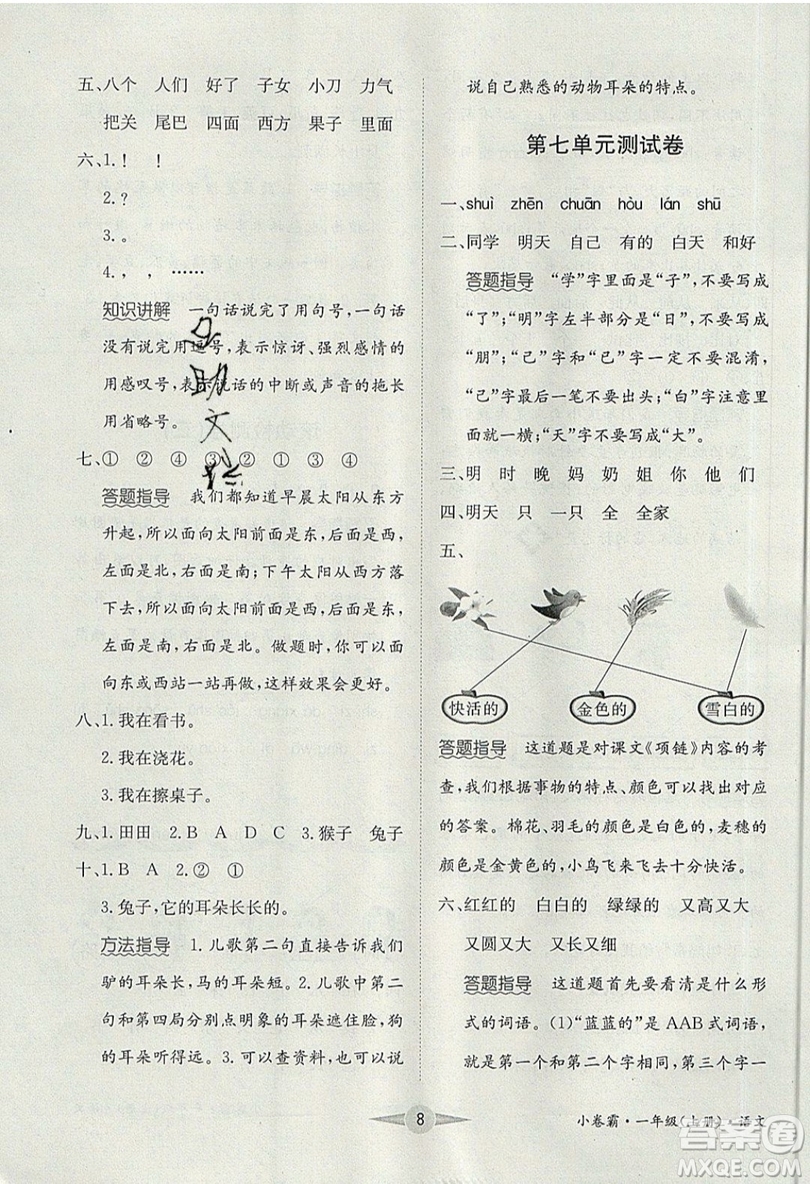 五、八个 人们 好了 子女 小刀 力气
把关 尾巴 四面 西方 果子 里面
六、1.！ ！
2.？
3.。
4.， ， ……
知识讲解 一句话说完了用句号，一句话
没有说完用逗号，表示惊讶、强烈感情的
用感叹号，表示说话的中断或声音的拖长
用省略号。
七、① ② ④ ③ ② ① ③ ④
答题指导 我们都知道早晨太阳从东方
升起，所以面向太阳前面是东，后面是西，
左面是北，右面是南；下午太阳从西方落
下去，所以面向太阳前面是西，后面是东，
左面是南，右面是北。做题时，你可以面
向东或西站一站再做，这样效果会更好。
八、1.我在看书。
2.我在浇花。
3.我在擦桌子。
九、1.田田 2.B A D C 3.猴子 兔子
十、1.B A 2.② ①
3.兔子，它的耳朵长长的。
方法指导 1.儿歌第二句直接告诉我们
驴的耳朵长，马的耳朵短。2.儿歌中第二
句和第四局分别点明象的耳朵遮住脸，狗
的耳朵听得远。3.可以查资料，也可以说
说自己熟悉的动物耳朵的特点。
第七单元测试卷
一、shuì zhēn chuān hòu lán shū
二、同学 明天 自己 有的 白天 和好
答题指导 “学”字里面是“子”，不要写成
“了”；“明”字左半部分是“日”，不要写成
“朋”；“已”字和“己”字一定不要混淆，
“己”字一定不要出头；“白”字里
面就一横；“天”字不要写成“大”。
三、明 时 晚 妈 奶 姐 你 他 们
四、明天 只 一只 全 全家
五、
快活的 金色的 雪白的
答题指导 这道题是对课文《项链》内容的考
查，我们根据事物的特点、颜色可以找出对应
的答案。棉花、羽毛的颜色是白色的，麦穗的
颜色是金黄色的，小鸟飞来飞去十分快活。
六、红红的 白白的 绿绿的 又高又大
又圆又大 又长又细
答题指导 这道题首先要看清是什么形
式的词语。(1)“蓝蓝的”是 AAB 式词语，
就是第一个和第二个字相同，第三个字一
8
小卷霸·一年级(上册)·语文
答案圈
MXQE.COM